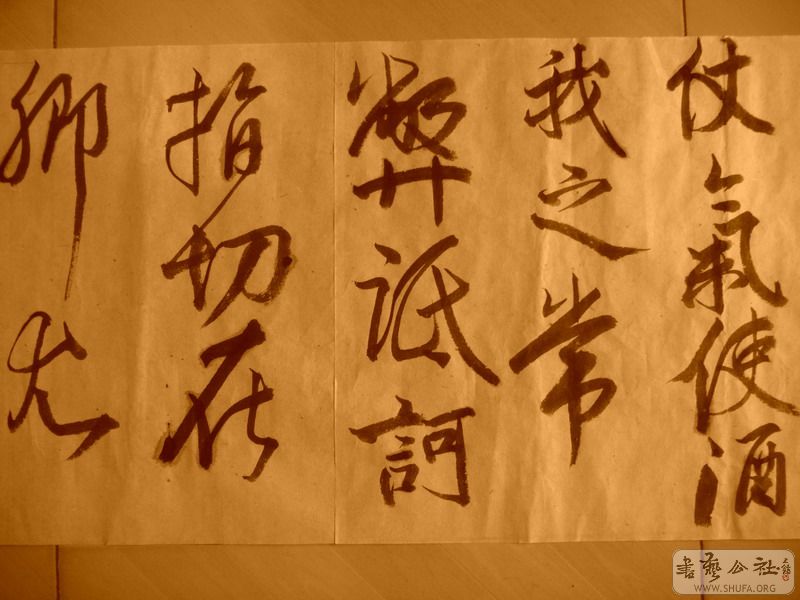 仗氣使酒
我之常
弊詆訶
指切在
卿尤
書藝公社
WWW.SHUFA.ORG